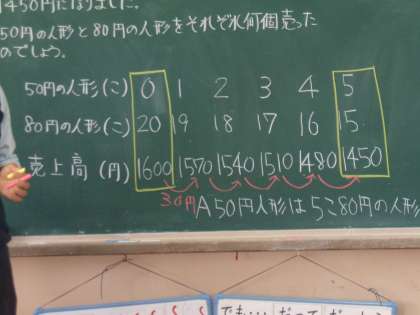 1450円になりました。
50円の人形と80円の人形をそれぞれ何個売った
のでしょう。
50円の人形(こ) 0 1 2 3 4 5
80円の人形(こ) 20 19 18 17 16 15
売上高(円) 1600 1570 1540 1510 1480 1450
30円 A 50円人形は5こ80円の人形